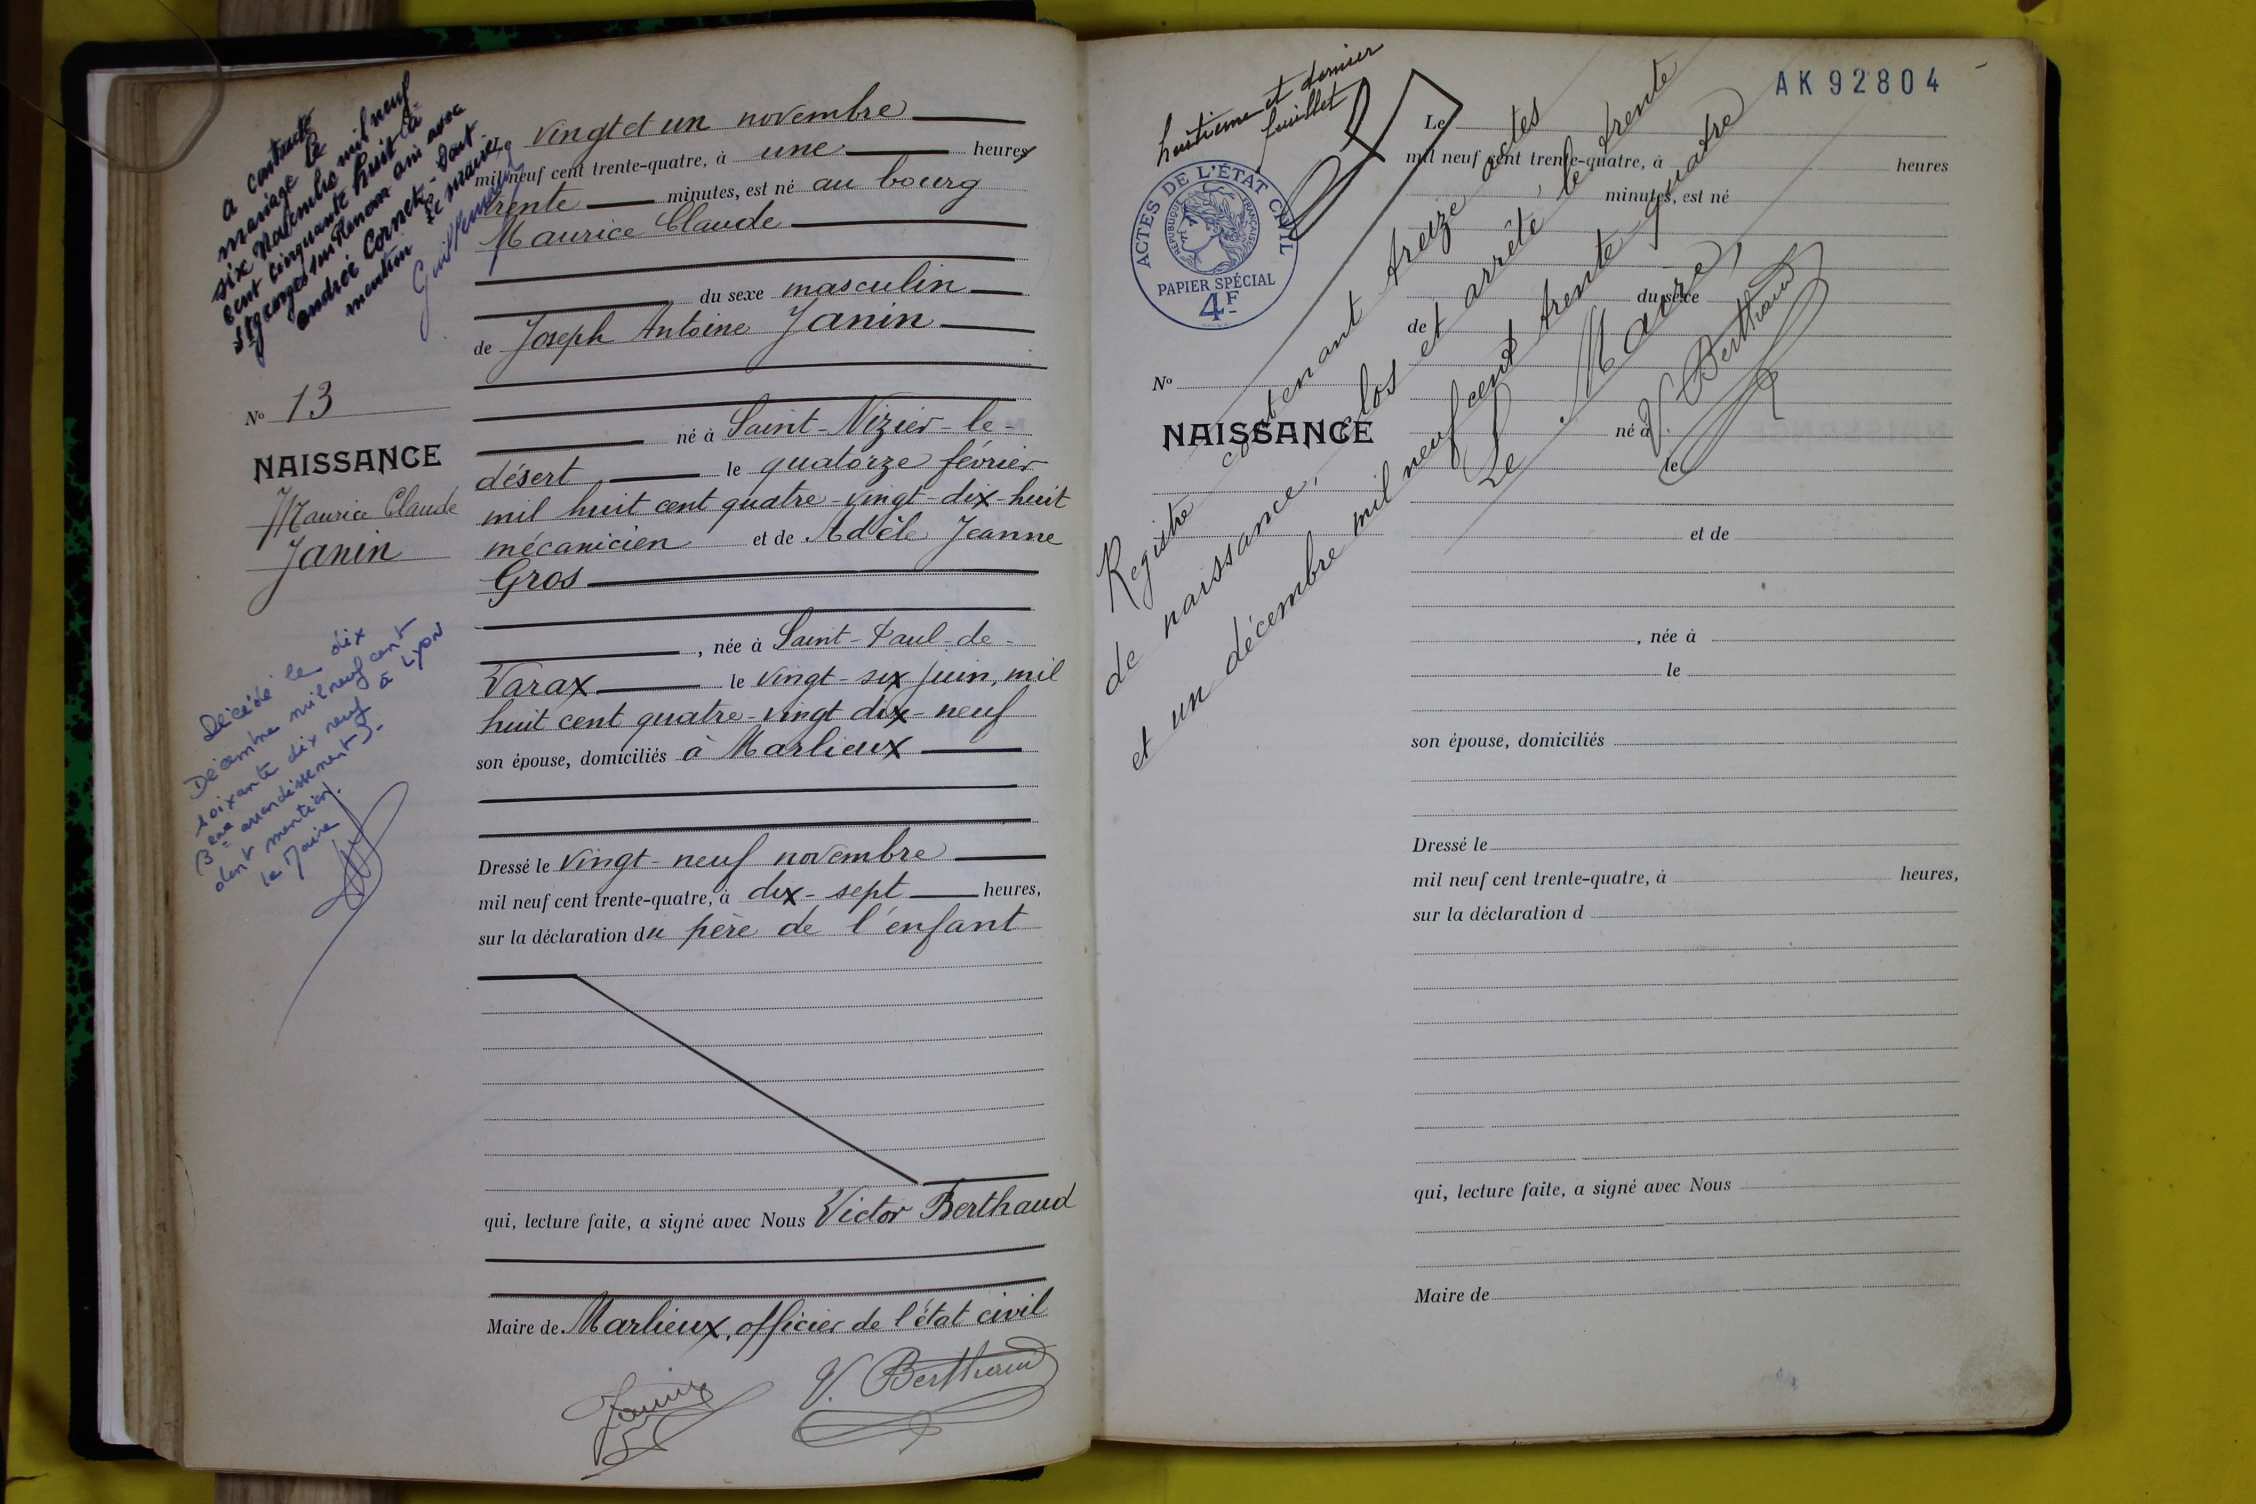 a contracté
mariage le
six Novembre mil neuf
cent cinquante huit à
St georges sur Renom ain avec
andrée Cornet - Dont
mention Le maire,
N° 13
NAISSANCE
Maurice Claude
Janin
Décédé le dix
Décembre mil neuf cent
soixante dix neuf à Lyon
3ème arrondissement).
dont mention.
le Maire
vingt et un novembre
mil neuf cent trente-quatre, à une heures
trente minutes, est né au bourg
Maurice Claude
du sexe masculin
de Joseph Antoine Janin
né à Saint-Nizier-le-
désert le quatorze février
mil huit cent quatre-vingt-dix-huit
mécanicien et de Adèle Jeanne
Gros
, née à Saint-Paul-de-
Varax le vingt-six juin, mil
huit cent quatre-vingt dix-neuf
son épouse, domiciliés à Marlieux
Dressé le vingt-neuf novembre
mil neuf cent trente-quatre, à dix-sept heures,
sur la déclaration du père de l'enfant
qui, lecture faite, a signé avec Nous Victor Berthaud
Maire de Marlieux, officier de l'état civil
Janin
V. Berthaud
huitième et dernier
feuillet
AK 92804
ACTES DE L'ÉTAT CIVIL
RÉPUBLIQUE FRANÇAISE
PAPIER SPÉCIAL
4F
Registre contenant treize actes
de naissance, clos et arrêté le trente
et un décembre mil neuf cent trente-quatre
Le Maire,
V. Berthaud
N°
NAISSANCE
Le
mil neuf cent trente-quatre, à heures
minutes, est né
du sexe
de
né à
le
et de
, née à
le
son épouse, domiciliés
Dressé le
mil neuf cent trente-quatre, à heures,
sur la déclaration d
qui, lecture faite, a signé avec Nous
Maire de